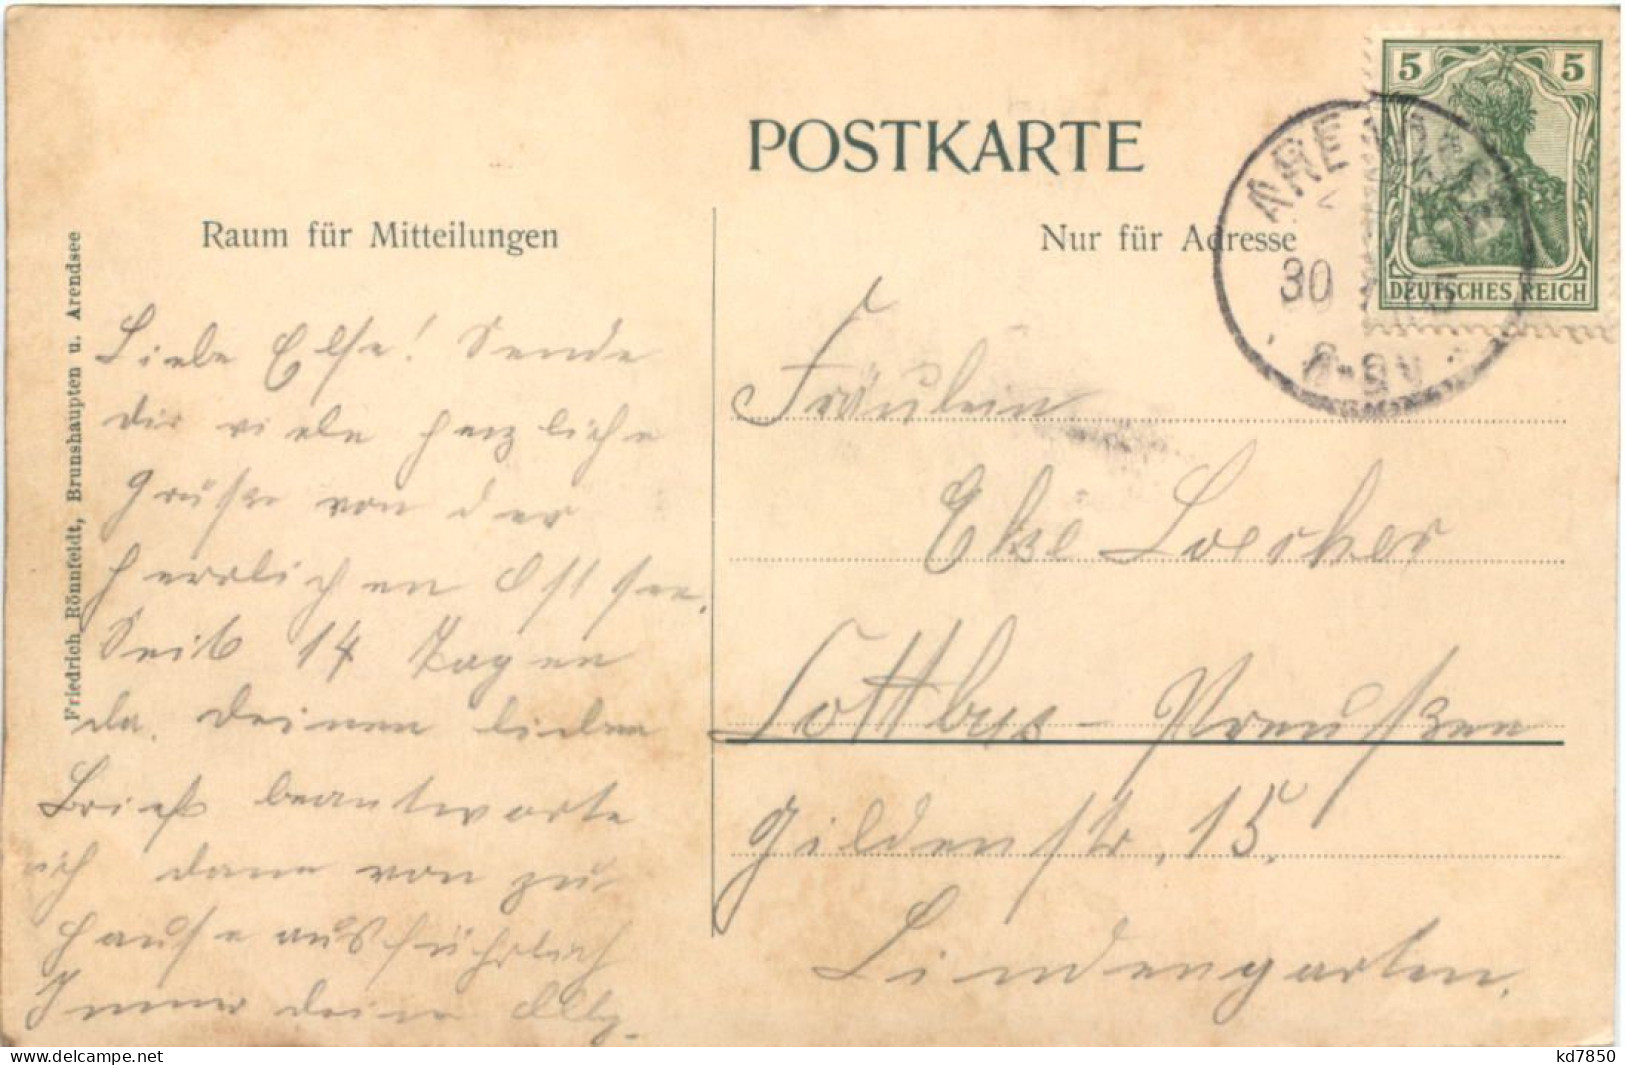 POSTKARTE
Raum für Mitteilungen
Nur für Adresse
Friedrich Rönnfeldt, Brunshaupten u. Arendsee
5 5
DEUTSCHES REICH
ARENDSEE
30
8-9V
Liebe Else! Sende
dir viele herzliche
Grüße von der
herrlichen Ostsee.
Seit 14 Tagen
da. Deinen lieben
Brief beantworte
ich dann von zu
Hause ausführlich
Immer deine Elly.
Fräulein
Else Loesker
Cottbus – Preußen
Gildenstr. 15.
Lindengarten.
www.delcampe.net
kd7850